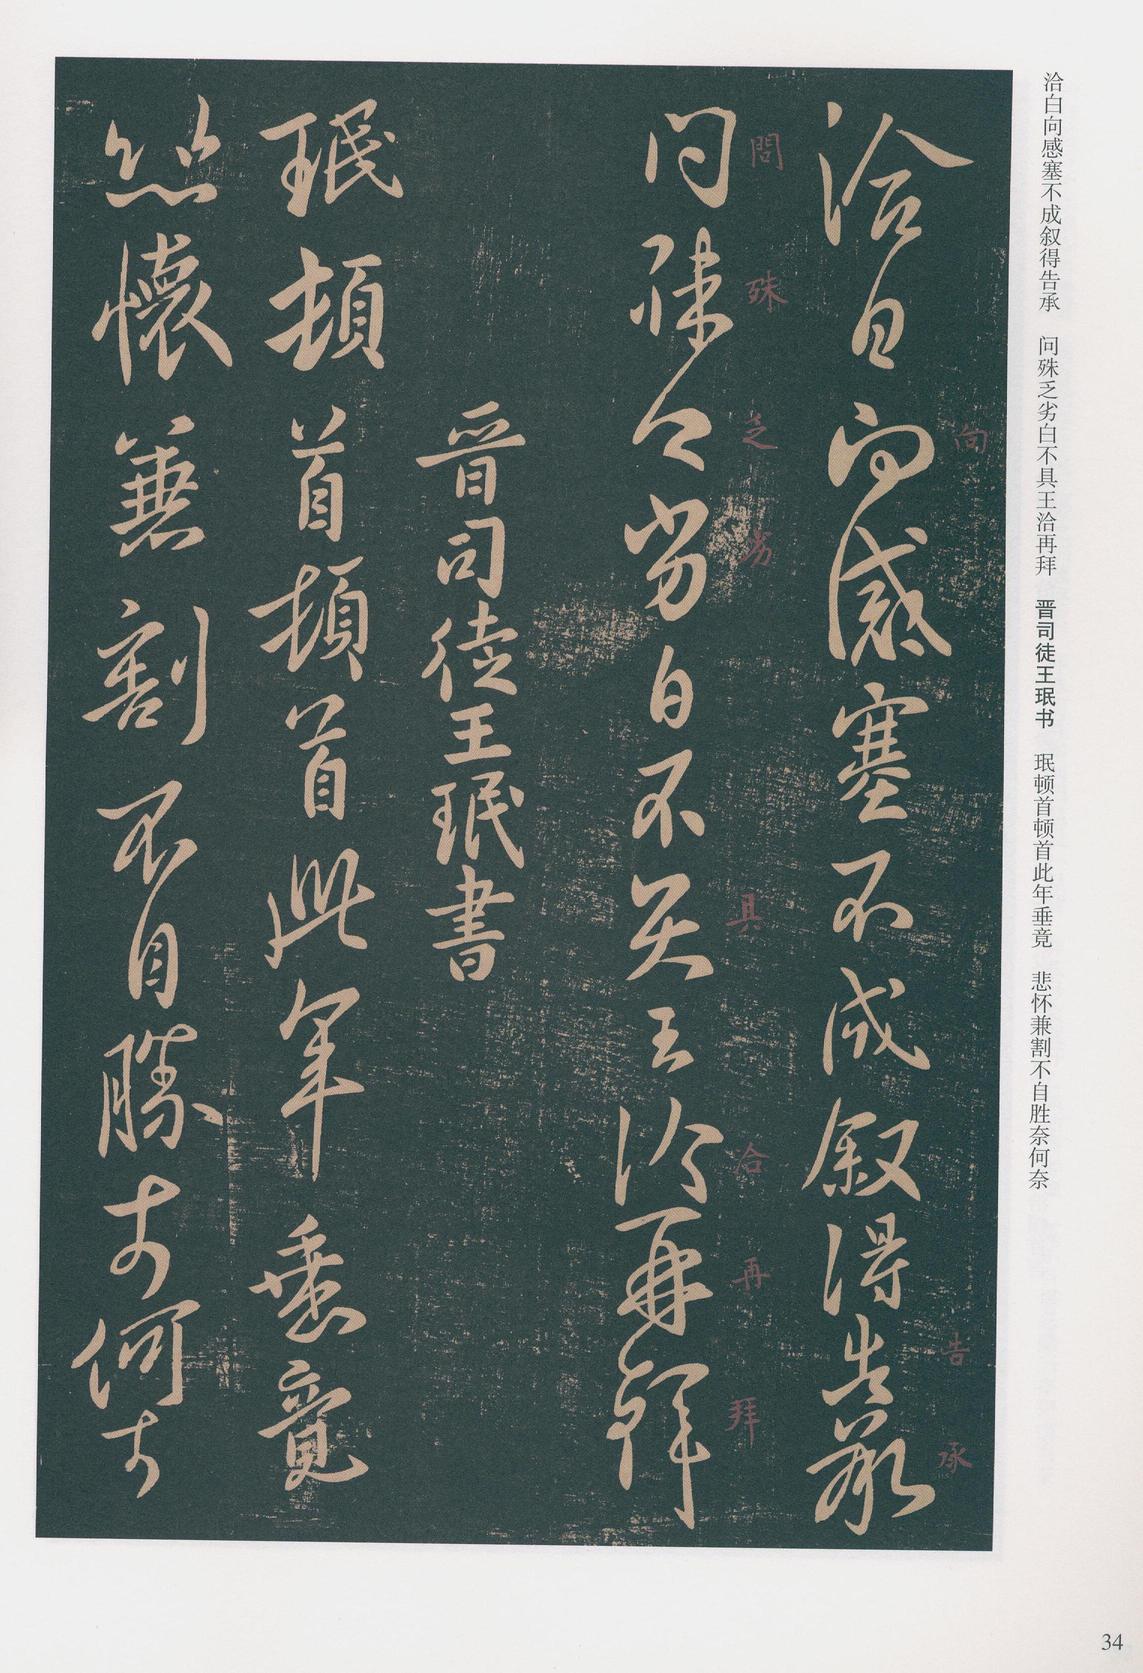 洽白向感塞不成叙得告承　问殊乏劣白不具王洽再拜　晋司徒王珉书　珉顿首顿首此年垂竟　悲怀兼割不自胜奈何奈
向
告
承
洽白向感塞不成叙得告承
問
殊
乏
劣
具
洽
再
拜
问殊乏劣白不具王洽再拜
晋司徒王珉書
珉頓首頓首此年垂竟
悲懷兼割不自勝奈何奈
34